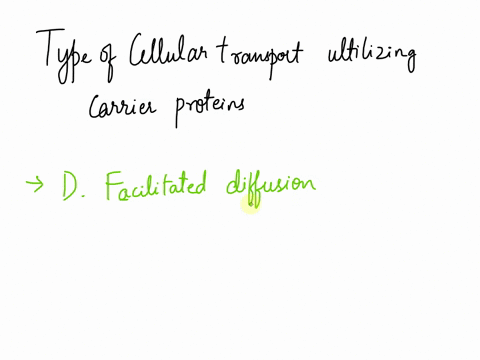 Type of Cellular transport ultilizing
Carrier proteins
→ D. Facilitated diffusion